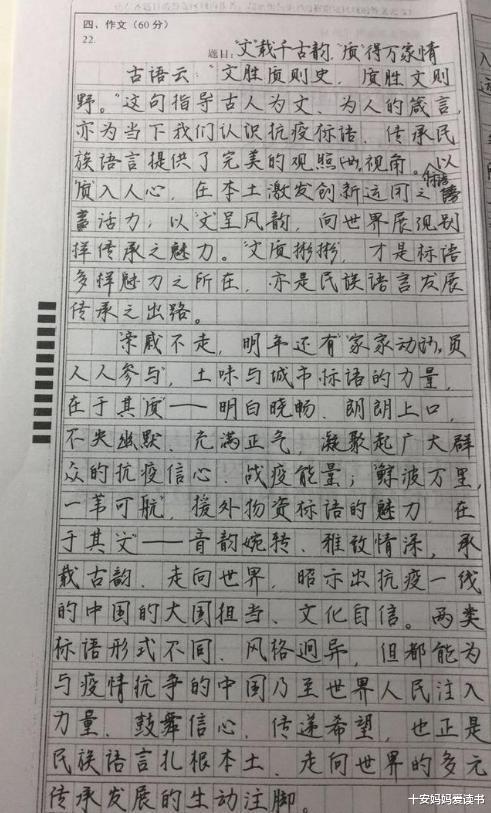 四、作文(60分)
22.
题目:“文”载千古韵,“质”得万家情
古语云:“文胜质则史,质胜文则
野。”这句指导古人为文、为人的箴言,
亦为当下我们认识抗疫标语、传承民
族语言提供了完美的观照视角。以
“质”入人心,在本土激发创新运用之
活力;以“文”呈风韵,向世界展现别
样传承之魅力。“文质彬彬”,才是标语
多样魅力之所在,亦是民族语言发展
传承之出路。
“亲戚不走,明年还有”“家家动员,
人人参与”,土味与城市标语的力量,
在于其“质”——明白晓畅、朗朗上口,
不失幽默、充满正气,凝聚起广大群
众的抗疫信心、战疫能量;“鲸波万里,
一苇可航”,援外物资标语的魅力,在
于其“文”——音韵婉转、雅致情深,承
载古韵、走向世界,昭示出抗疫一线
的中国的大国担当、文化自信。两类
标语形式不同、风格迥异,但都能为
与疫情抗争的中国乃至世界人民注入
力量、鼓舞信心、传递希望,也正是
民族语言扎根本土、走向世界的多元
传承发展的生动注脚。
十安妈妈爱读书